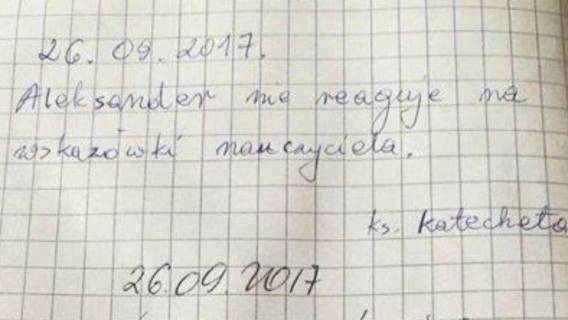 26. 09. 2017.
Aleksander nie reaguje na
wskazówki nauczyciela.
ks. katecheta
26.09.2017